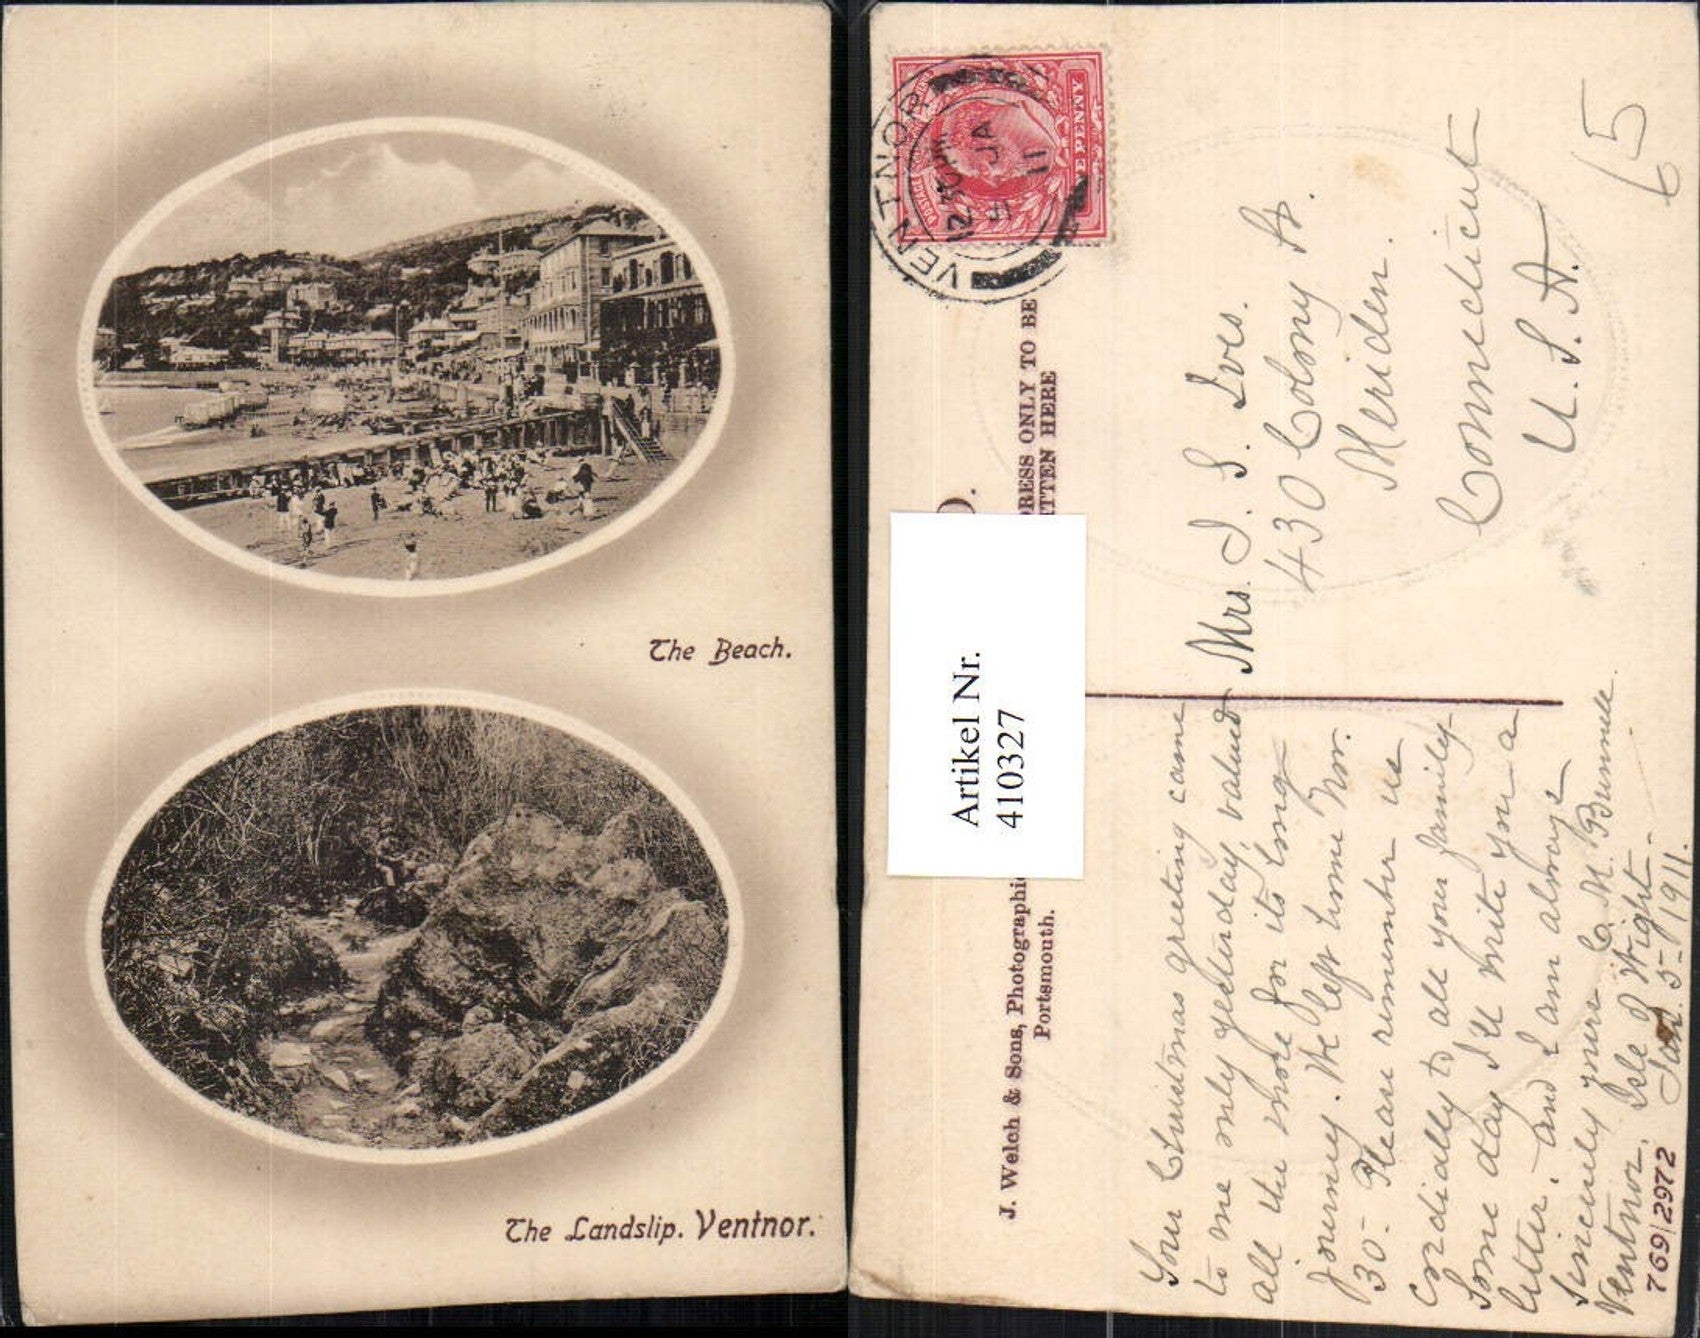 The Beach.
The Landslip. Ventnor.
VENTNOR
12.30 PM
5 JA
11
E PENNY
POSTAGE
DRESS ONLY TO BE
ITTEN HERE
D.
Artikel Nr.
4103327
J. Welch & Sons, Photographic
Portsmouth.
Mrs. I. S. Ives.
430 Colony St.
Meriden.
Connecticut
U.S.A.
65
Your Christmas greeting came
to me only yesterday, valued
all the more for its long
journey. We left home Nov.
30. Please remember us
cordially to all your family
Some day I'll write you a
letter. And I am always
sincerely yours C. M. Bunnell.
Ventnor, Isle of Wight.
Jan. 5-1911.
769/2972